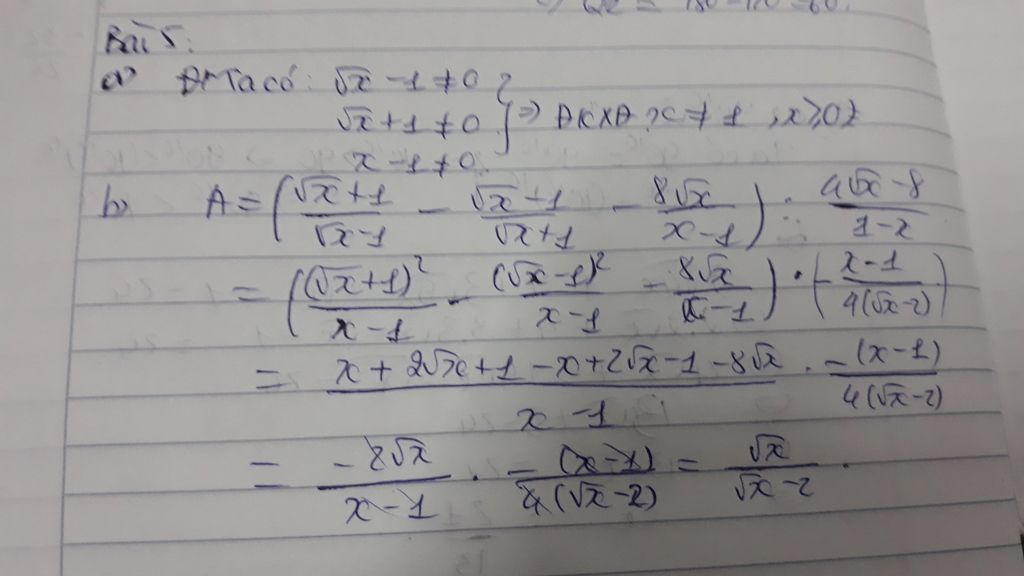 Bài 5:
a) Ta có: √x - 1 ≠ 0
√x + 1 ≠ 0 } => ĐKXĐ: x ≠ 1, x ≥ 0
x - 1 ≠ 0
b) A = ((√x + 1)/(√x - 1) - (√x - 1)/(√x + 1) - 8√x/(x - 1)) : (4√x - 8)/(1 - x)
= ((√x + 1)²/(x - 1) - (√x - 1)²/(x - 1) - 8√x/(x - 1)) · (- (x - 1)/(4(√x - 2)))
= (x + 2√x + 1 - x + 2√x - 1 - 8√x)/(x - 1) · -(x - 1)/(4(√x - 2))
= -8√x/(x - 1) · -(x - 1)/(4(√x - 2)) = √x/(√x - 2).